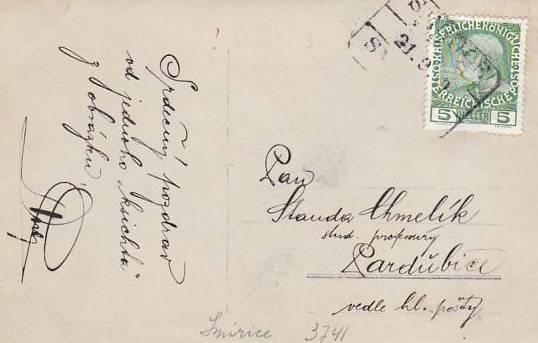 Srdečný pozdrav
od jednoho „ksichtu"
z obrázku
Pan
Standa Chmelík
stud. profesury
Pardubice
vedle hl. pošty
Smiřice 3741
S
21.
KAISERLICHE KÖNIGLICHE
ÖSTERREICHISCHE POST
5 HELLER 5